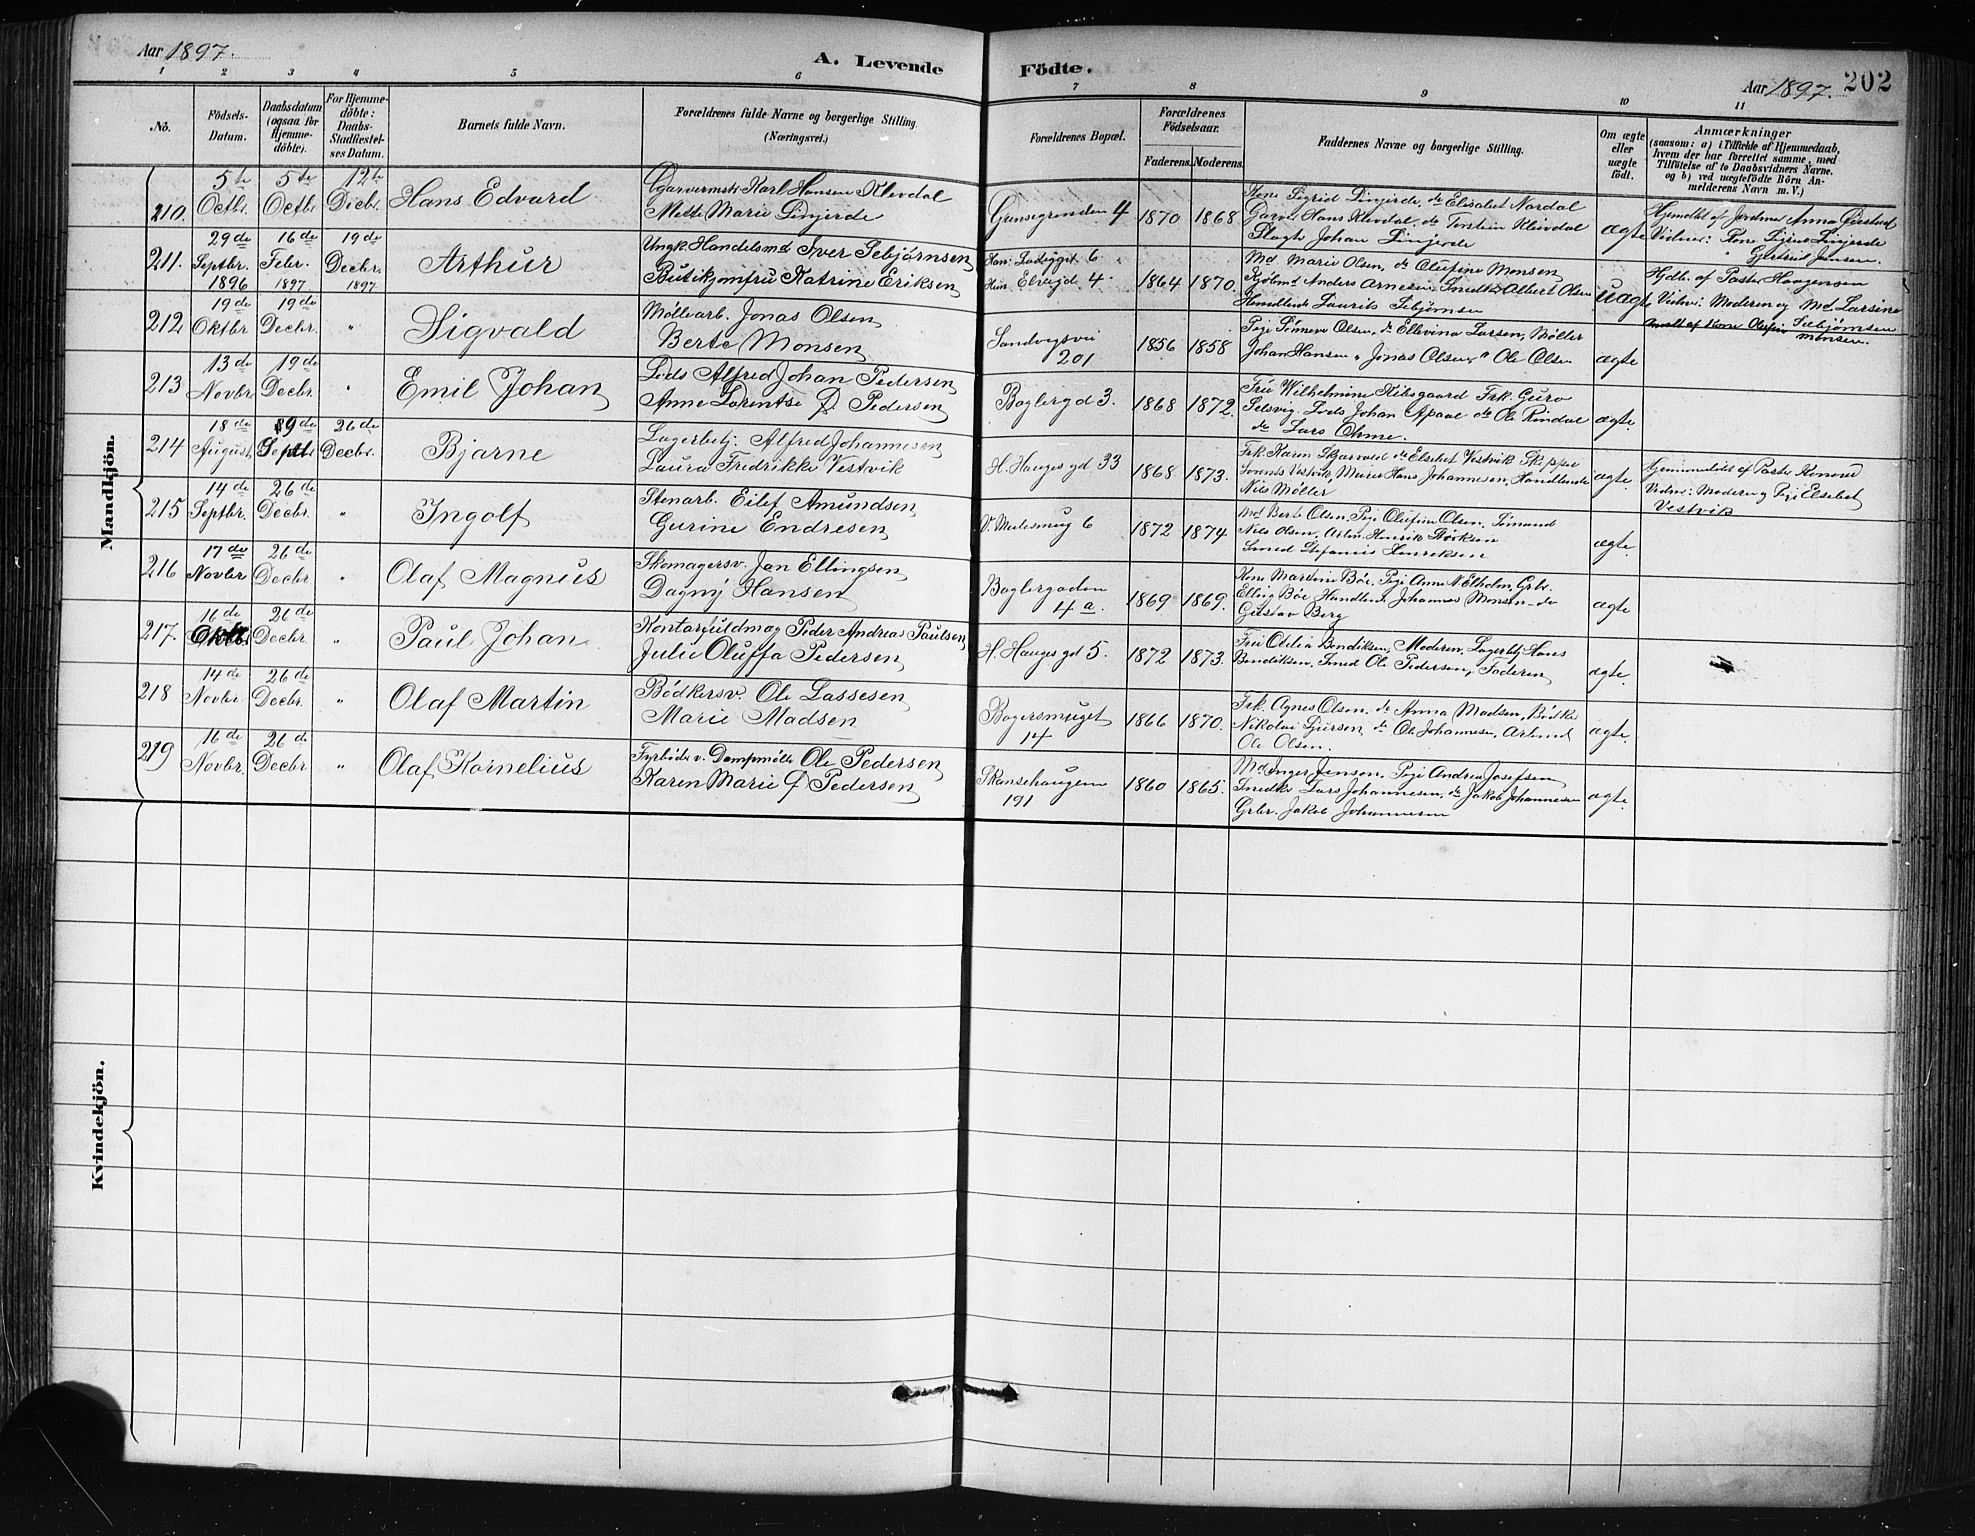 Aar 1897.
A. Levende Födte.
Aar 1897. 202
1 2 3 4 5 6 7 8 9 10 11
No.
Födsels-
Datum.
Daabsdatum
(ogsaa for
Hjemme-
döbte).
For Hjemme-
döbte:
Daabs-
Stadfæstel-
ses Datum.
Barnets fulde Navn.
Forældrenes fulde Navne og borgerlige Stilling.
(Næringsvei.)
Forældrenes Bopæl.
Forældrenes
Födselsaar.
Faderens. Moderens.
Faddernes Navne og borgerlige Stilling.
Om ægte
eller
uægte
födt.
Anmærkninger
(saasom: a) i Tilfælde af Hjemmedaab,
hvem der har forrettet samme, med
Tilföielse af to Daabsvidners Navne.
og b) ved uægtefödte Börn An-
melderens Navn m. V.)
Mandkjön.
210. 5te Octbr. 5te Octbr. 12te Decbr. Hans Edvard
Garvermstr Karl Hansen Kleivdal
Mette Marie Linjerde
Grønsegrenden 4 1870 1868
Kone Sigrid Linjerde, do Elisabet Nordal
Garver Hans Kleivdal, do Torstein Kleivdal
Slagt Johan Linjerde
ægte
Hjemdbt af Jordmor Anna
Vidner: Kone Sigrid Linjerde
Gjertrud Jensen.
211. 29de Septbr. 1896 16de Febr. 1897 19de Decbr. 1897 Arthur
Ungk. Handelsmd Iver Sebjørnsen
Butikjomfru Katrine Eriksen
Han: Ladeggt 6
Hun: Elvegd 4. 1864 1870.
Md Marie Olsen, do Olufine Monsen
Kjøbmd Anders Arnesen, Snedk. Albert Olsen
Handlende Laurits Sebjørnsen
uægte
Hjdbt. af Pastor Haagensen
Vidner: Moderen og Md Larsine
Sebjørnsen
Anmldt af Kone Olufine Monsen.
212. 19de Oktbr 19de Decbr. " Sigvald
Møllearb. Jonas Olsen
Berte Monsen
Sandvigsvei
201 1856 1858
Pige Sønneva Olsen, do Ellevina Larsen, Møller
Johan Hansen, " Jonas Olsen, " Ole Olsen
ægte
213 13de Novbr 19de Decbr. " Emil Johan
Lods Alfred Johan Pedersen
Anne Lorentse f. Pedersen
Baglergd 3. 1868 1872.
Fru Wilhelmine Kibsgaard Frk. Guro
Selsvig. Lods Johan Apaal do Ole Rindal
do Lars Ohme.
ægte
214 18de August 19de Septbr 26de Decbr. Bjarne
Lagerbetj. Alfred Johannesen
Laura Fredrikke Vestvik
H. Hauges gd 33 1868 1873.
Frk Karen Skjarvold do Elsebet Vestvik Skipper
Vestvik, Murer Hans Johannesen, Handlende
Nils Møller
ægte.
Hjemmedøbt af Pastor
Vidne: Moder og Pige Elsebet
Vestvik
215 14de Septbr. 26de Decbr. " Ingolf
Stenarb. Eilef Amundsen
Gurine Endresen
V. Medesmug 6 1872 1874
Md Berte Olsen, Pige Olufine Olsen, Sømand
Nils Olsen, Arbm. Henrik
Smed Stefanus Henriksen
ægte.
216 17de Novbr 26de Decbr. " Olaf Magnus
Skomagersv. Jan Ellingsen
Dagny Hansen
Baglergaden
4 a. 1869 1869.
Kone Martine Böe, Pige Anne N. Elholm, Grbr.
Elling Böe, Handlend Johannes Monsen, do
Gustav Berg
ægte
217. 16de Oktbr. 26de Decbr " Paul Johan
Peder Andreas Paulsen
Julie Oluffa Pedersen
H. Hauges gd 5. 1872 1873.
Fru Otilia Bendiksen, Moderen, Lagerbtj Hans
Bendiksen, Smed Ole Pedersen, Faderen
ægte.
218 14de Novbr. 26de Decbr. " Olaf Martin
Bödkersv. Ole Lassesen
Marie Madsen
Bagersmuget
14 1866 1870.
Frk. Agnes Olsen, do Anna Madsen, Bödker
Nikolai Sjursen, do Ole Johannesen, Arbmd
Ole Olsen.
ægte.
219 16de Novbr. 26de Decbr " Olaf Kornelius
Fyrböder v. Dampmölle Ole Pedersen
Karen Marie f. Pedersen
Skansehaugene
191 1860 1865.
Md Inger Jensen, Pige Andrea Josefsen
Snedker Lars Johannesen, do Jakob Johannesen
Grbr. Jakob Johannesen
ægte.
Kvindekjön.